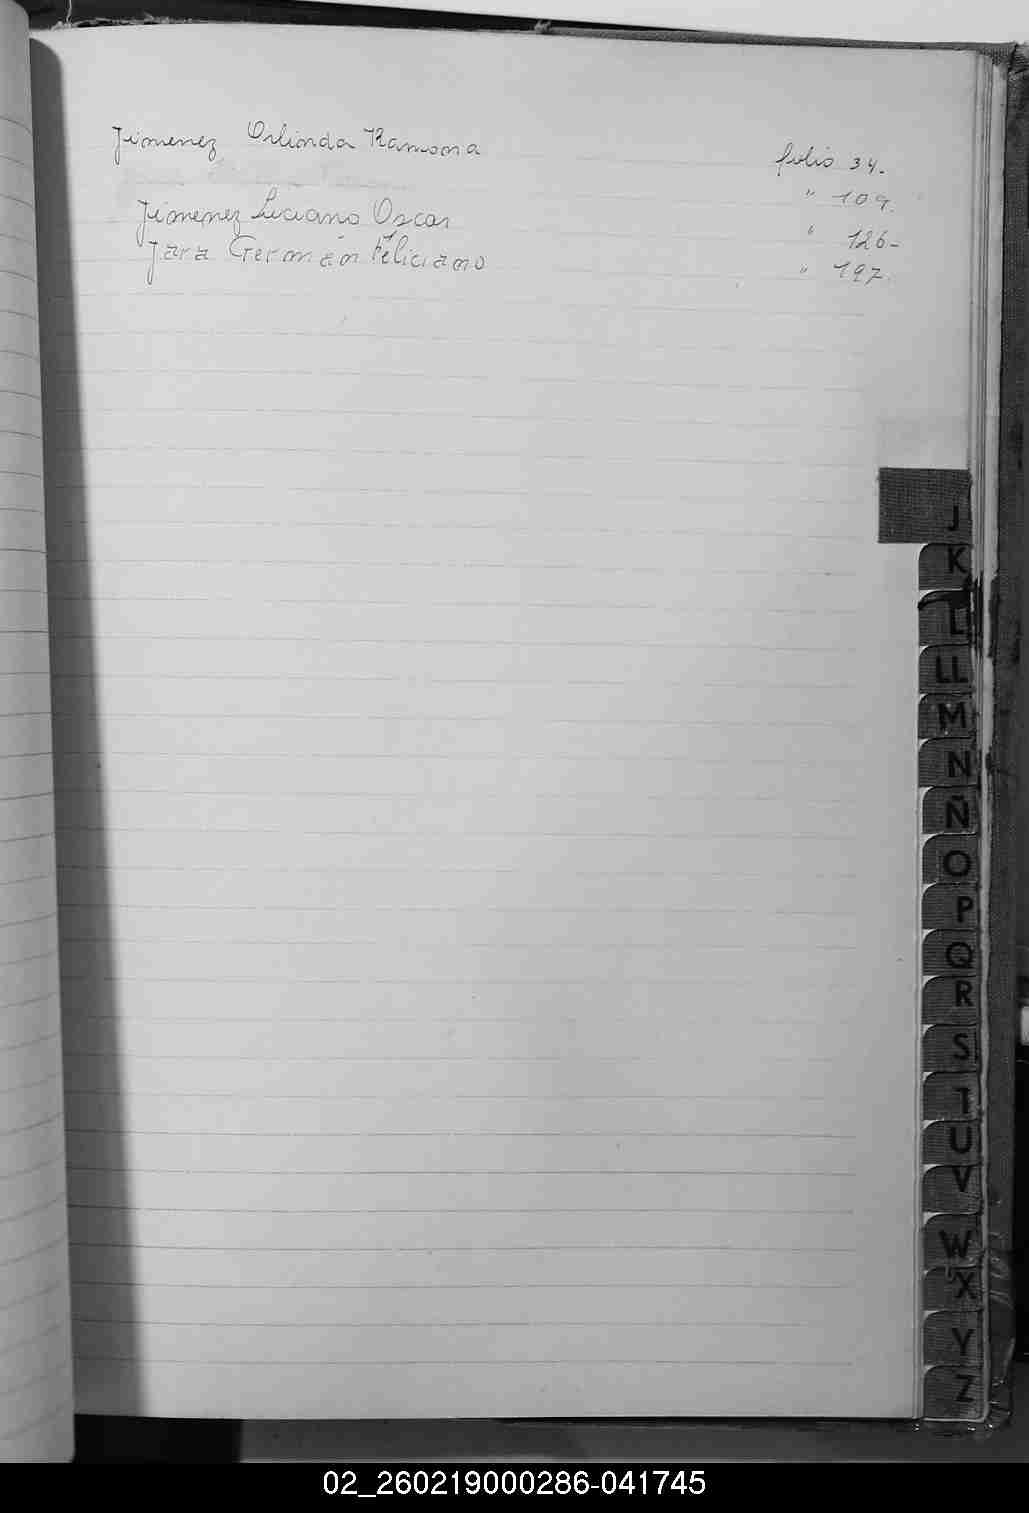 Jimenez Orlinda Ramona folio 34.
" 109.
Jimenez Luciano Oscar " 126-
Jara Germán Feliciano " 197.
J
K
L
LL
M
N
Ñ
O
P
Q
R
S
T
U
V
W
X
Y
Z
02_260219000286-041745